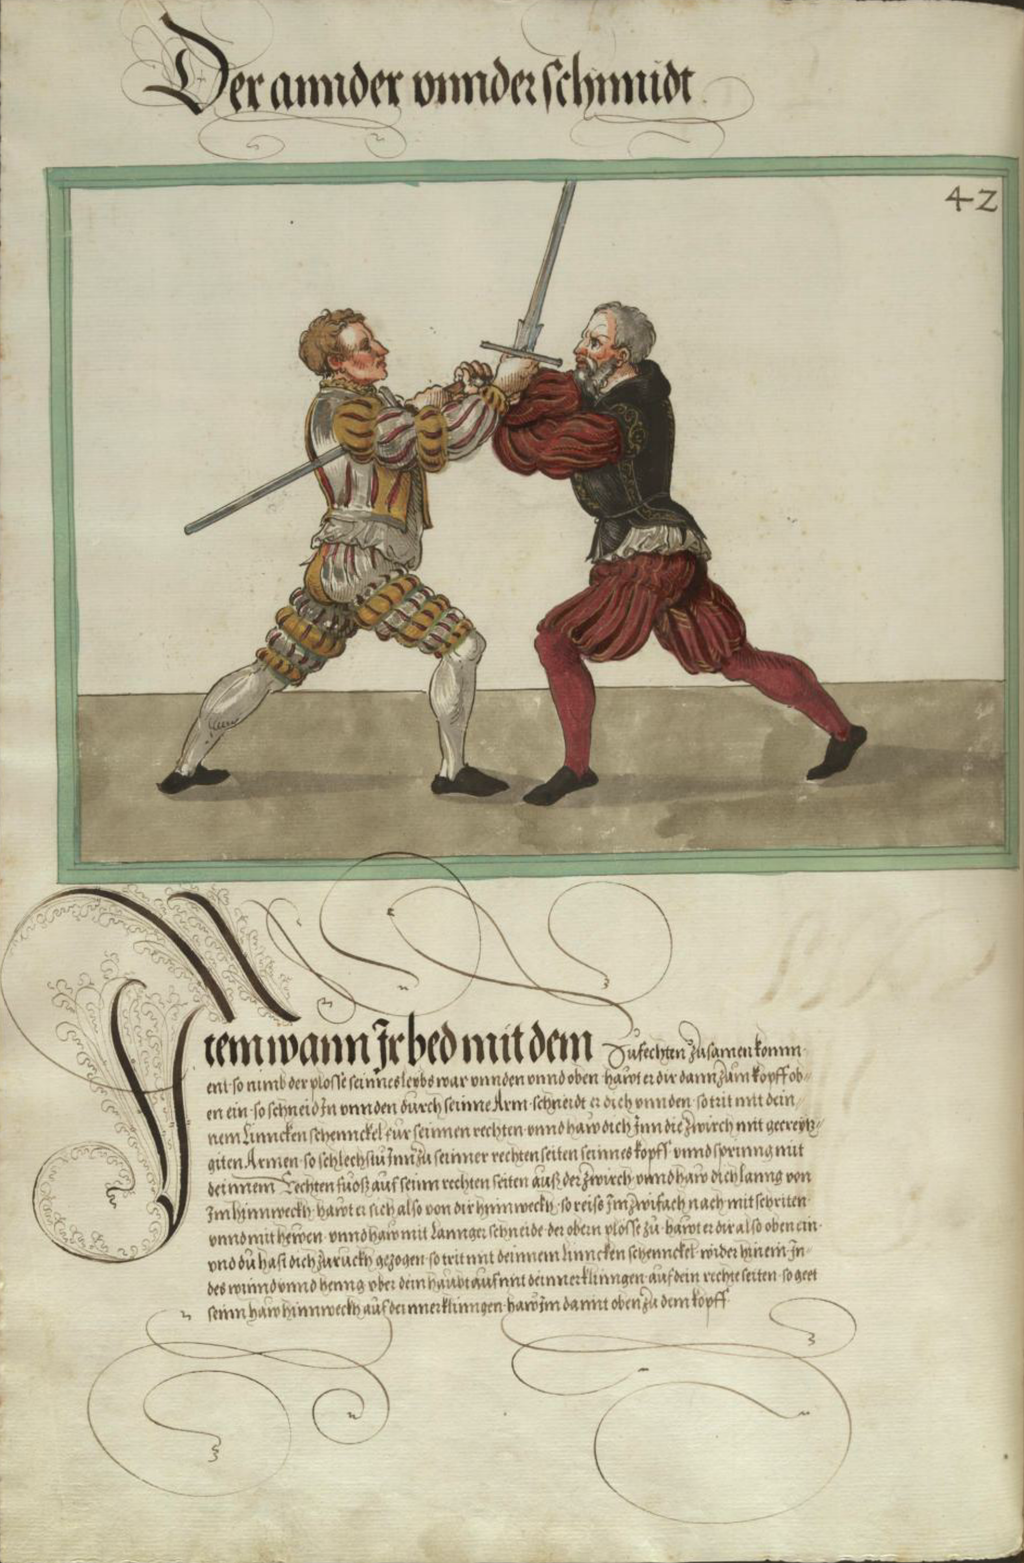 Der annder vnnderschnidt
42
Item wann Jr bed mit dem Zufechten zusamen komm-
ent so nimb der plosse seinnes leybs war vnnden vnnd oben hawt er dir dann zum kopff ob-
en ein so schneid In vnnden durch seinne Arm schneidt er dich vnnden so trit mit dein-
nem Linncken schennckel fur seinnen rechten vnnd haw dich Inn die zwirch mit
giten Armen so schlechstu Inn zu seinner rechten seiten seinnes kopff vnnd spring mit
deinnem Rechten fuoß auf seinn rechten seiten auß der zwirch vnnd haw dich lanng von
Im hinnweckh hawt er sich also von dir hinnweckh so reiß Im zwifach nach mit schriten
vnnd mit hewen vnnd haw mit Lannger schneide der obern plosse zu hawt er dir also oben ein
vnd du hast dich zuruckh gezogen so trit mit deinnem linncken schennckel wider hinein In
des wind vnnd henng vber dein haubt auf mit deinner klinngen auf dein rechte seiten so geet
seinn haw hinnweckh auf deinner klinngen haw Im damit oben zu dem kopff